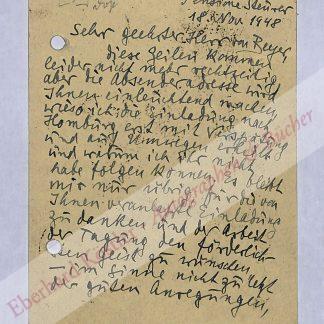 Pensione Steurer
18. Nov 1948
Sehr geehrter Herr von Reyer
diese Zeilen kommen
leider nicht mehr rechtzeitig
aber die Absenderadresse wird
Ihnen einleuchtend machen
wieso ich die Einladung nach
Homburg erst mit Verspätung
und auf Umwegen erhielt
und warum ich ihr nicht
habe folgen können. Es bleibt
mir nur übrig für die von
Ihnen veranlasste Einladung
zu danken und der Arbeit
der Tagung den förderlich-
sten Geist zu wünschen,
im Sinne nicht zuletzt
der guten Anregungen,
Eberhard Köstler Autographen & Bücher